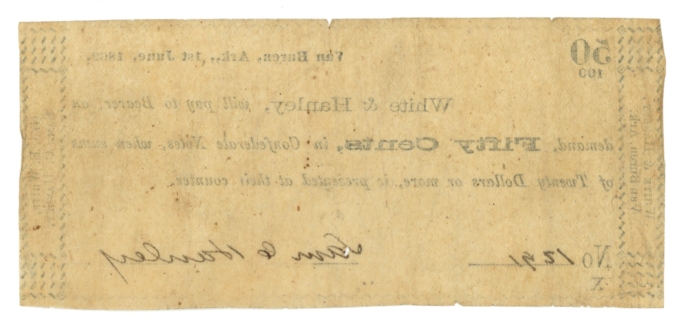 50
100
Van Buren, Ark., 1st June, 1862.
White & Hanley, will pay to Bearer, on
demand, Fifty Cents, in Confederate Notes, when sums
of Twenty Dollars or more, is presented at their counter.
No 1291
X
Sam C Hanley
Van Buren, Ark.